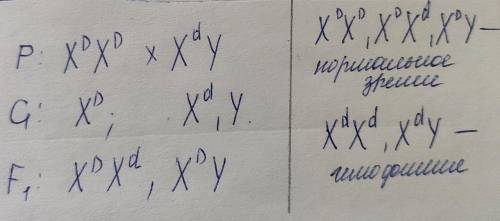 P: X^D X^D × X^d Y
G: X^D; X^d, Y.
F₁: X^D X^d, X^D Y
X^D X^D, X^D X^d, X^D Y —
нормальное
зрение
X^d X^d, X^d Y —